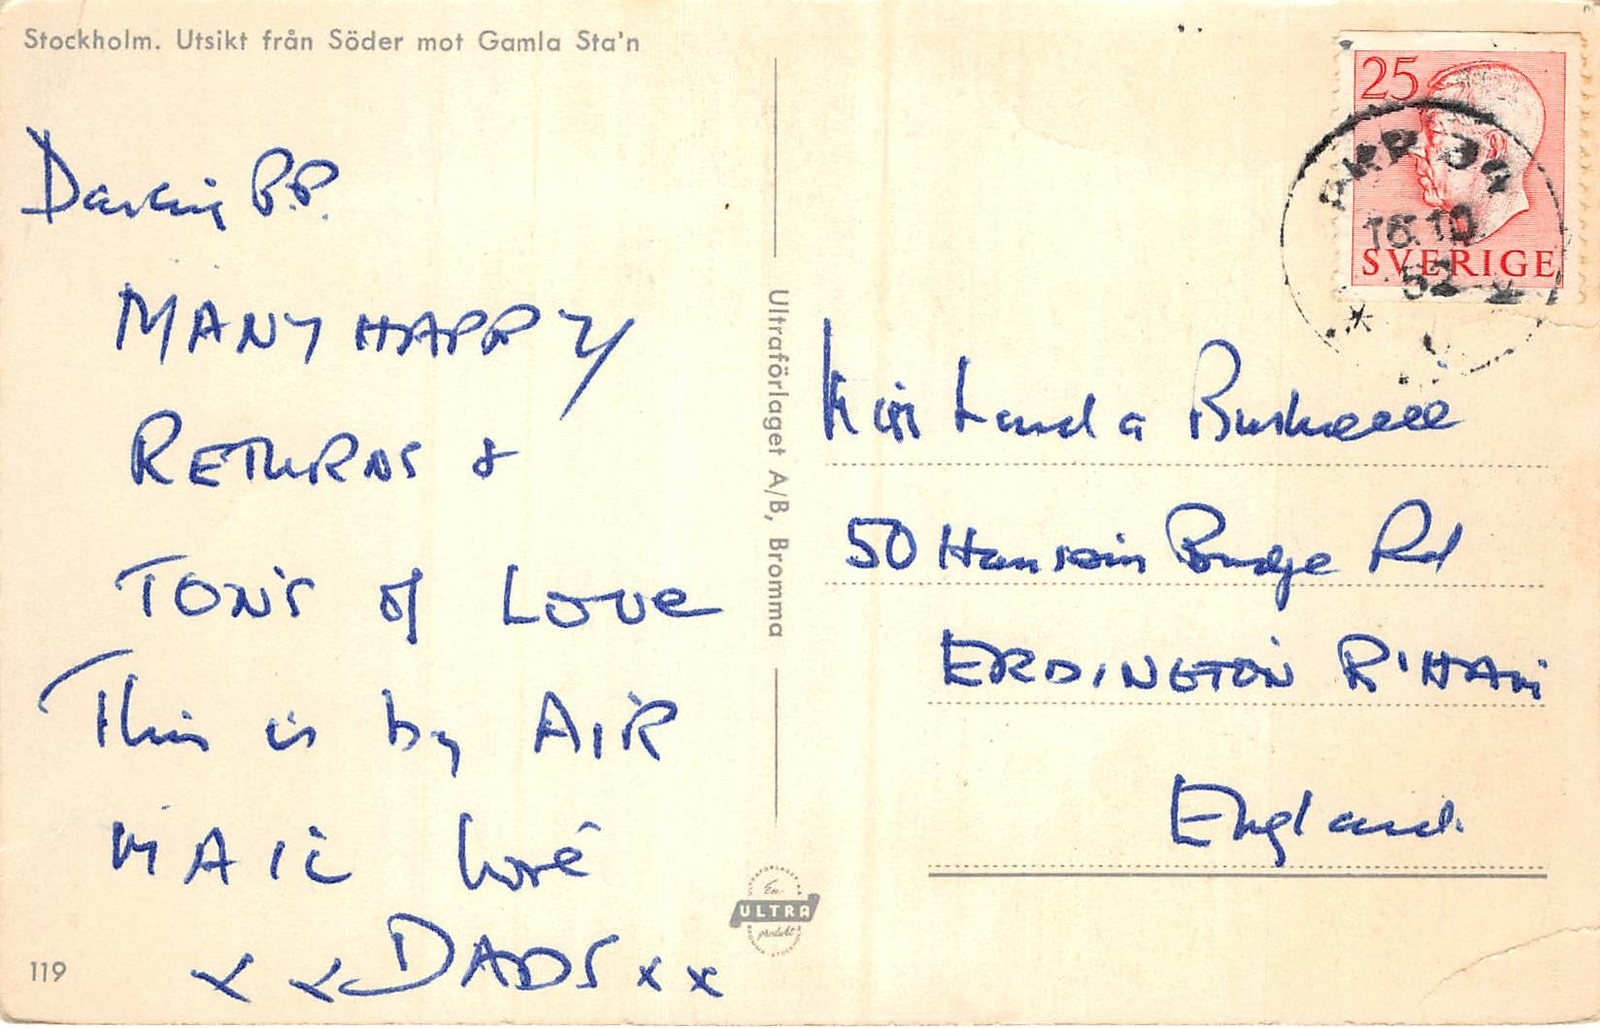 Stockholm. Utsikt från Söder mot Gamla Sta'n
Darling P.P.
MANY HAPPY
RETURNS &
TONS of LOVE
This is by AIR
MAIL love
x x DADS x x
119
Ultraförlaget A/B, Bromma
En
ULTRA
produkt
25
SVERIGE
16.10
52
Miss Landa
50 Rd
ERDINGTON B'HAM
England.